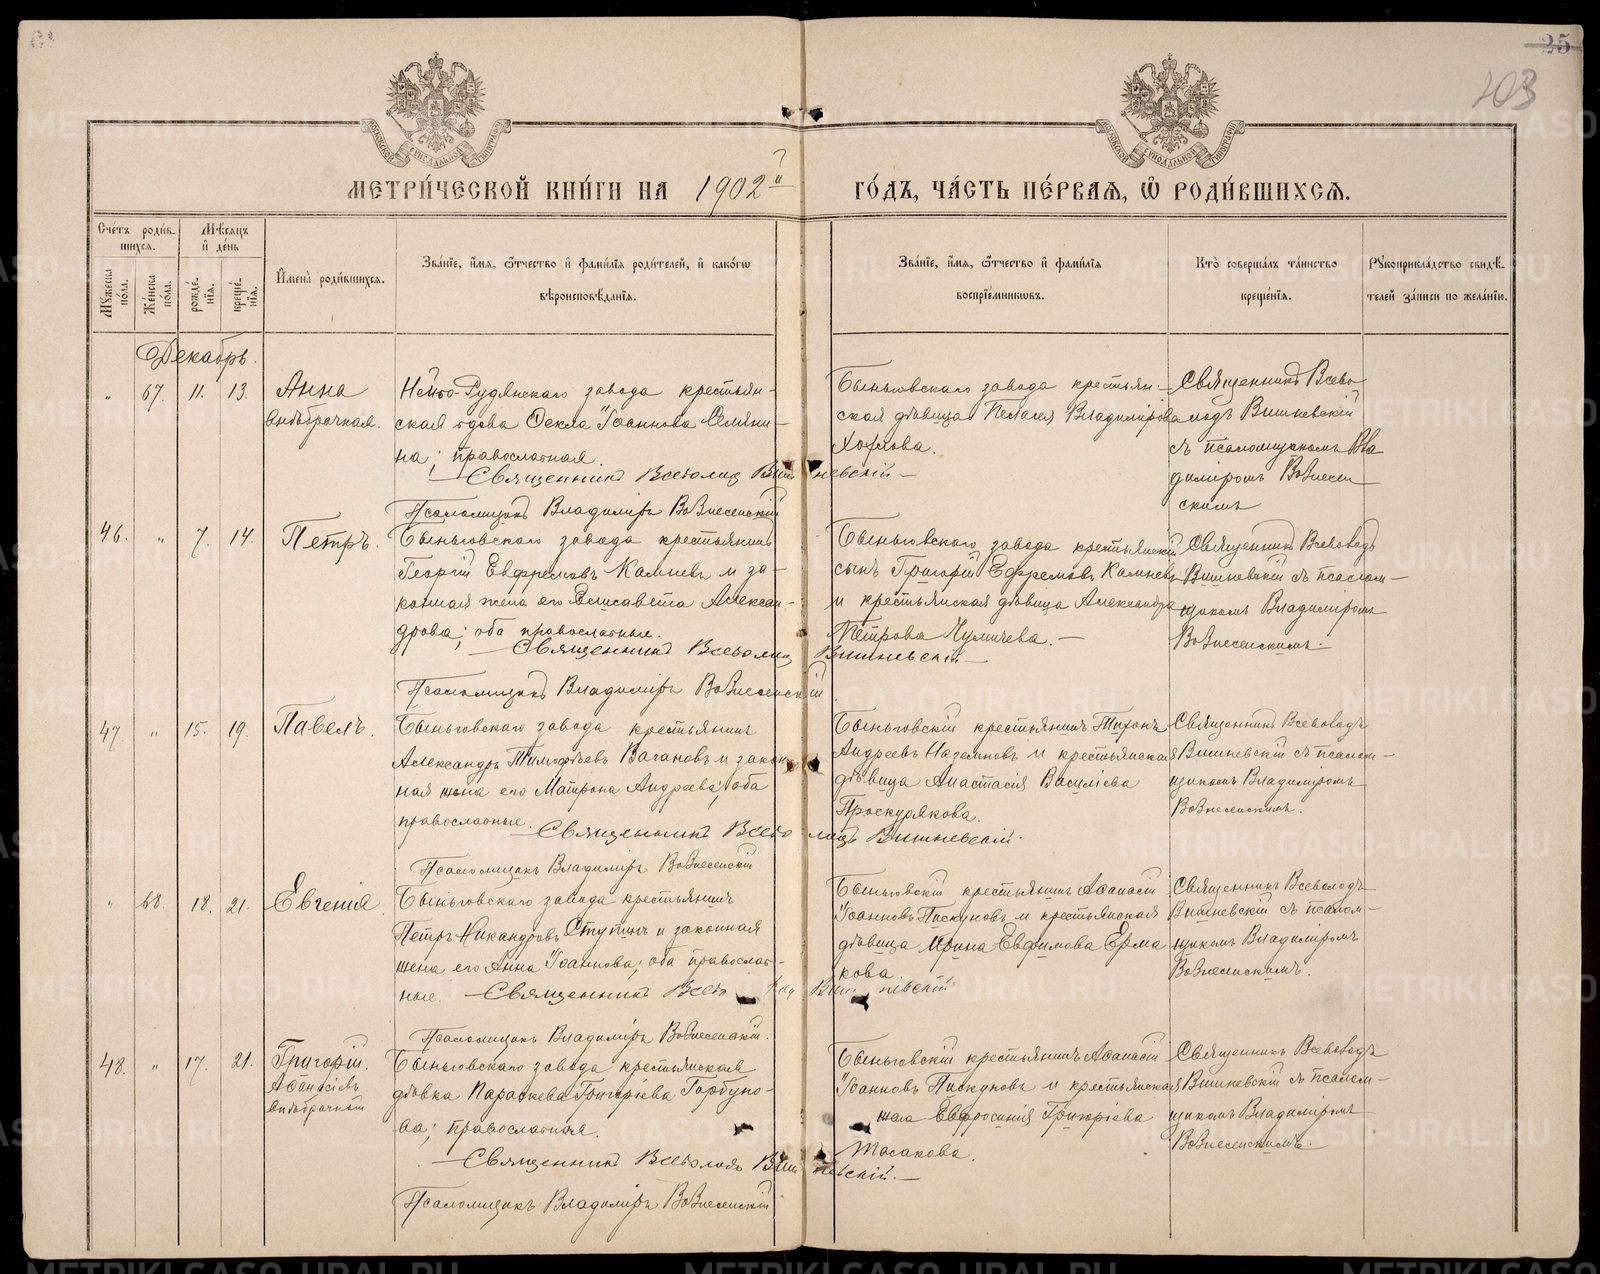 25
103
МЕТРИЧЕСКОЙ КНИГИ НА 1902й ГОДЪ, ЧАСТЬ ПЕРВАЯ, Ѡ РОДИВШИХСЯ.
Счетъ родив-
шихся.
Мѣсяцъ
и день
Мужеска
пола.
Женска
пола.
рожде-
нія.
креще-
нія.
Имена родившихся.
Званіе, имя, отчество и фамилія родителей, и какогѡ
вѣроисповѣданія.
Званіе, имя, отчество и фамилія
воспріемниковъ.
Кто совершалъ таинство
крещенія.
Рукоприкладство свидѣ-
телей записи по желанію.
Декабрь.
" 67. 11. 13.
Анна
внѣбрачная.
Нейво-Рудянскаго завода крестьян-
ская вдова Ѳекла Іоаннова Семяни-
на; православная
Священникъ Всеволодъ Вишневскій
Псаломщикъ Владиміръ Вознесенскій
Быньговскаго завода крестьян-
ская дѣвица Пелагея Владимірова
Хорлова.
Священникъ Всево-
лодъ Вишневскій
съ псаломщикомъ Вла
диміромъ Вознесен
скимъ
46. " 7. 14.
Петръ.
Быньговскаго завода крестьянинъ
Георгій Евфремовъ Калиевъ и за-
конная жена его Елисавета Алексан-
дрова; оба православные.
Священникъ Всеволодъ Вишневскій
Псаломщикъ Владиміръ Вознесенскій
Быньговскаго завода крестьянскій
сынъ Григорій Ефремовъ Калиевъ
и крестьянская дѣвица Александра
Петрова Чумичева.
Священникъ Всеволодъ
Вишневскій съ псалом-
щикомъ Владиміромъ
Вознесенскимъ.
47. " 15. 19.
Павелъ.
Быньговскаго завода крестьянинъ
Александръ Тимофѣевъ Вагановъ и закон
ная жена его Матрона Андреева; оба
православные. Священникъ Всеволодъ Вишневскій.
Псаломщикъ Владиміръ Вознесенскій
Быньговскій крестьянинъ Тихонъ
Андреевъ Наземновъ и крестьянская
дѣвица Анастасія Василіева
Проскурякова.
Священникъ Всеволодъ
Вишневскій съ псалом-
щикомъ Владиміромъ
Вознесенскимъ.
" 68. 18. 21.
Евгенія.
Быньговскаго завода крестьянинъ
Петръ Никандровъ Ступинъ и законная
жена его Анна Іоаннова; оба православ-
ные. Священникъ Всеволодъ Вишневскій
Псаломщикъ Владиміръ Вознесенскій.
Быньговскій крестьянинъ Аѳанасій
Іоанновъ Пискуновъ и крестьянская
дѣвица Ирина Евфимова Ерма
кова.
Священникъ Всеволодъ
Вишневскій съ псалом-
щикомъ Владиміромъ
Вознесенскимъ.
48. " 17. 21.
Григорій.
Аѳанасіевъ
внѣбрачный
Быньговскаго завода крестьянская
дѣвка Параскева Григоріева Горбуно-
ва; православная.
Священникъ Всеволодъ Вишневскій.
Псаломщикъ Владиміръ Вознесенскій
Быньговскій крестьянинъ Аѳанасій
Іоанновъ Пискуновъ и крестьянская
жена Евфросинія Григоріева
Тосакова.
Священникъ Всеволодъ
Вишневскій съ псалом-
щикомъ Владиміромъ
Вознесенскимъ.
METRIKI.GASO-URAL.RU